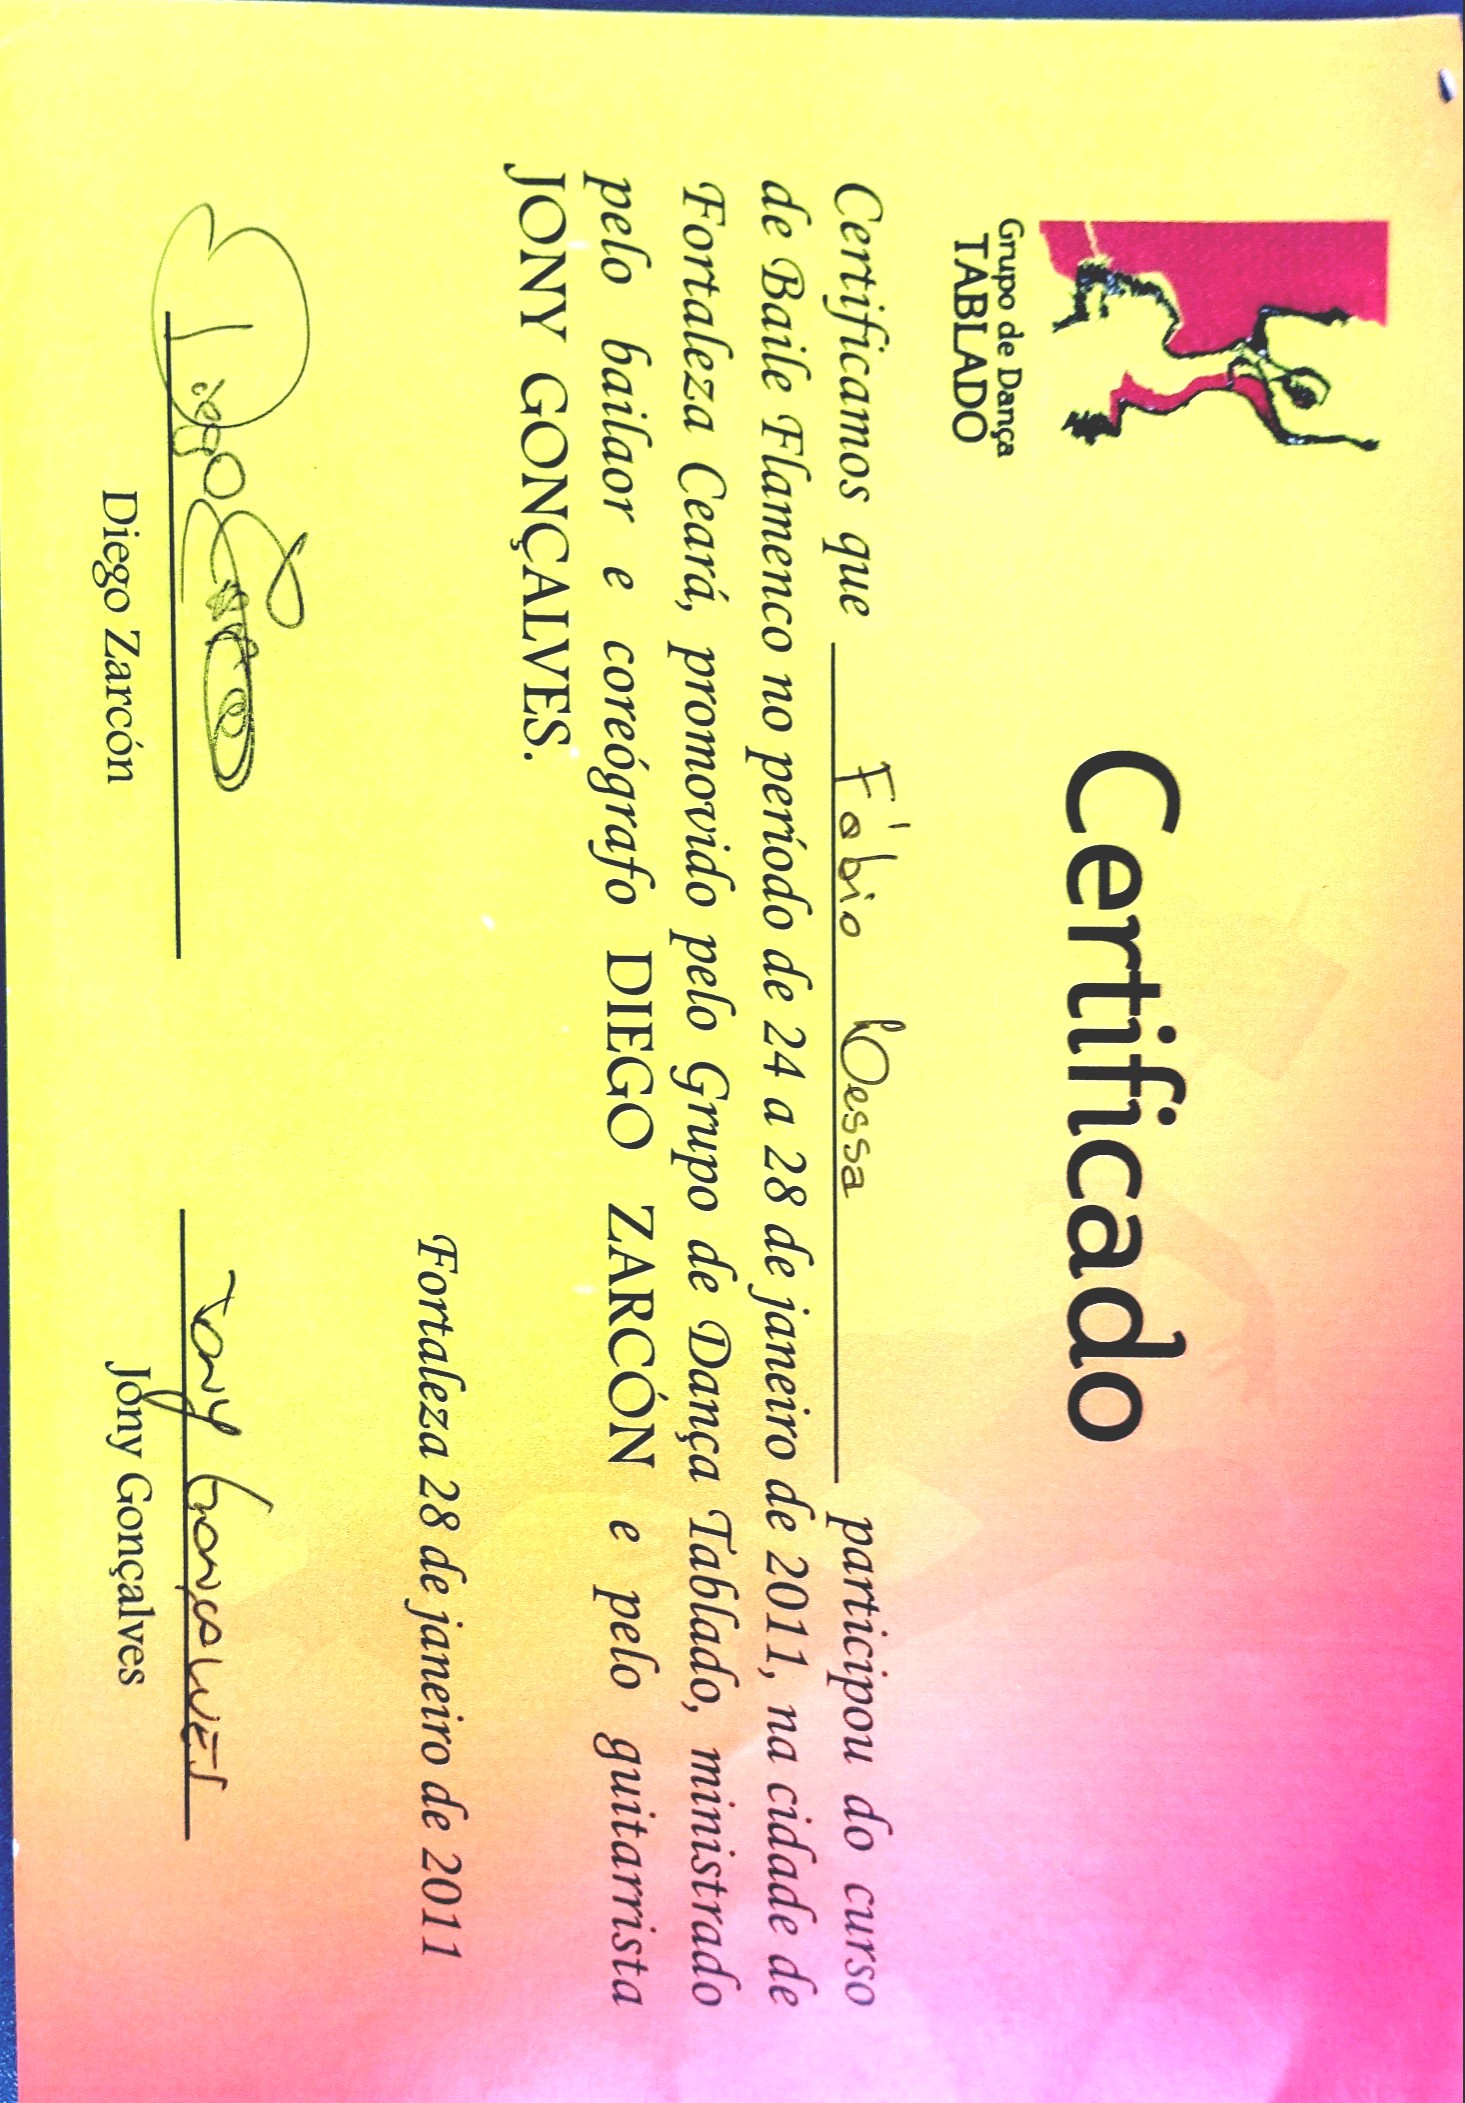 Grupo de Dança
TABLADO
Certificado
Certificamos que Fábio Pessa participou do curso
de Baile Flamenco no período de 24 a 28 de janeiro de 2011, na cidade de
Fortaleza Ceará, promovido pelo Grupo de Dança Tablado, ministrado
pelo bailaor e coreógrafo DIEGO ZARCÓN e pelo guitarrista
JONY GONÇALVES.
Fortaleza 28 de janeiro de 2011
Diego Zarcón
Jony Gonçalves
Diego Zarcón
Jony Gonçalves